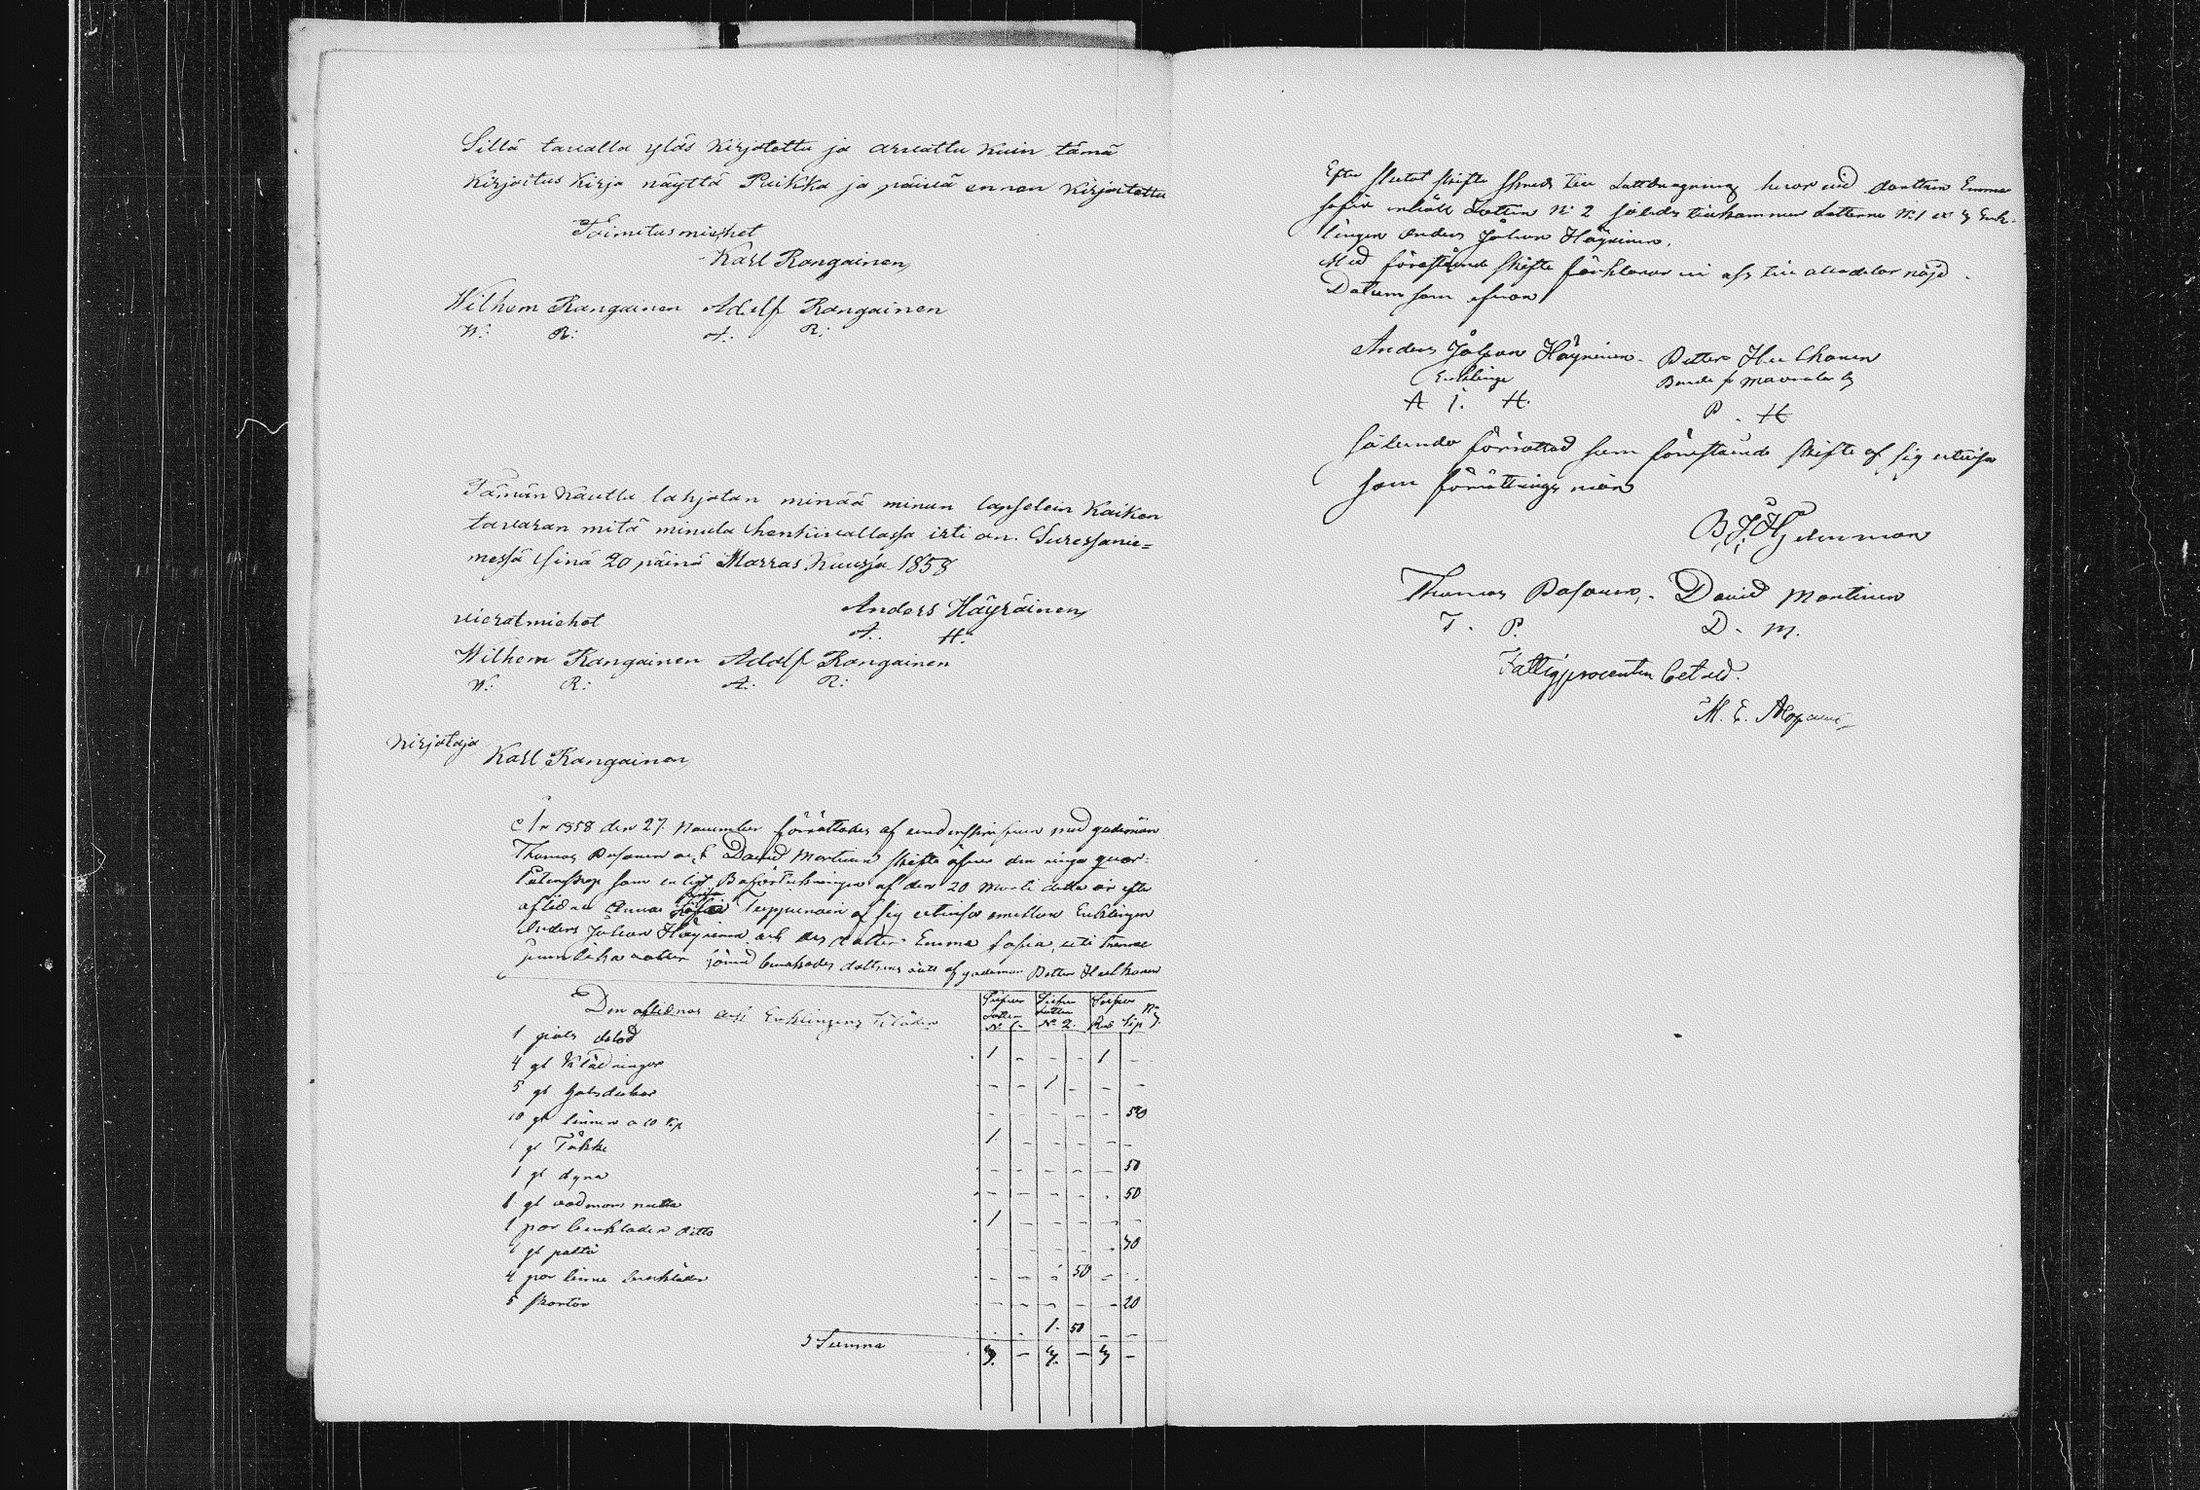 Sillä tavalla ylös kirjotettu ja arvattu kuin tämä
Kirjoitus kirja näyttä Paikka ja päivä ennen kirjoitettu
Toimitusmiehet
Karl Kangainen
Wilhem Kangainen Adolf Kangainen
W: R: A: R:
Tämän kautta lahjotan minää minun lapselein kaiken
tavaran mitä minula henkivallassa irti on. Suressanie=
messä sinä 20 päinä Marras kuussa 1858
Anders Häyräinen
vieratmiehet
A. H.
Wilhem Kangainen Adolf Kangainen
W: R: A: R:
Kirjotaja Karl Kangainen
År 1858 den 27. November förrättades af undertecknad med godemän
Thomas Pasanen och David Martinen skifte öfver den ringa qvar-
låtenskap som enligt Bouppteckningen af den 20 detta år efter
aflidne Anna Sofia af sig utvisa emellan Enklingen
Anders Johan Häyrinen och dess dotter Emma Sofia, uti trenne
jemlika lotter hvarvid bevakades dottrens rätt af godeman Petter Hulkonen
Den aflidnas och Enklingens kläder
Lotten N: 1. Lotten N: 2. Rub kop N: 3.
1 1 1
4 gl klädningar 1
5 gl halsdukar 50
10 gl linnen a 10 kop 1
1 gl Täkke 50
1 gl dyna 50
1 gl vadmans 1
1 par benkläder ditto 70
1 gl 50
4 par linne benkläder 20
5 skortor 1. 50
Summa 3. - 3. - 3 -
Efter slutat skifte skreds till Lottdragning hvarvid dottren Emma
Sofia erhöll Lotten N: 2 således tillkommer Lotterne N: 1 & 3 Enk-
lingen Anders Johan Häyrinen.
Med förestående skifte förklarar vi oss till alla delar nöjd.
Datum som ofvan
Anders Johan Häyrinen. Petter Hulkonen
Enkling Bonde fr
A J. H. P. H
Sålunda förrättad som förestående skifte af sig utvisa
som förrättnings män
B. J.
Thomas Pasanen, David Martinen
T. P. D. M.
Fattigprocenten betald.
M. E.